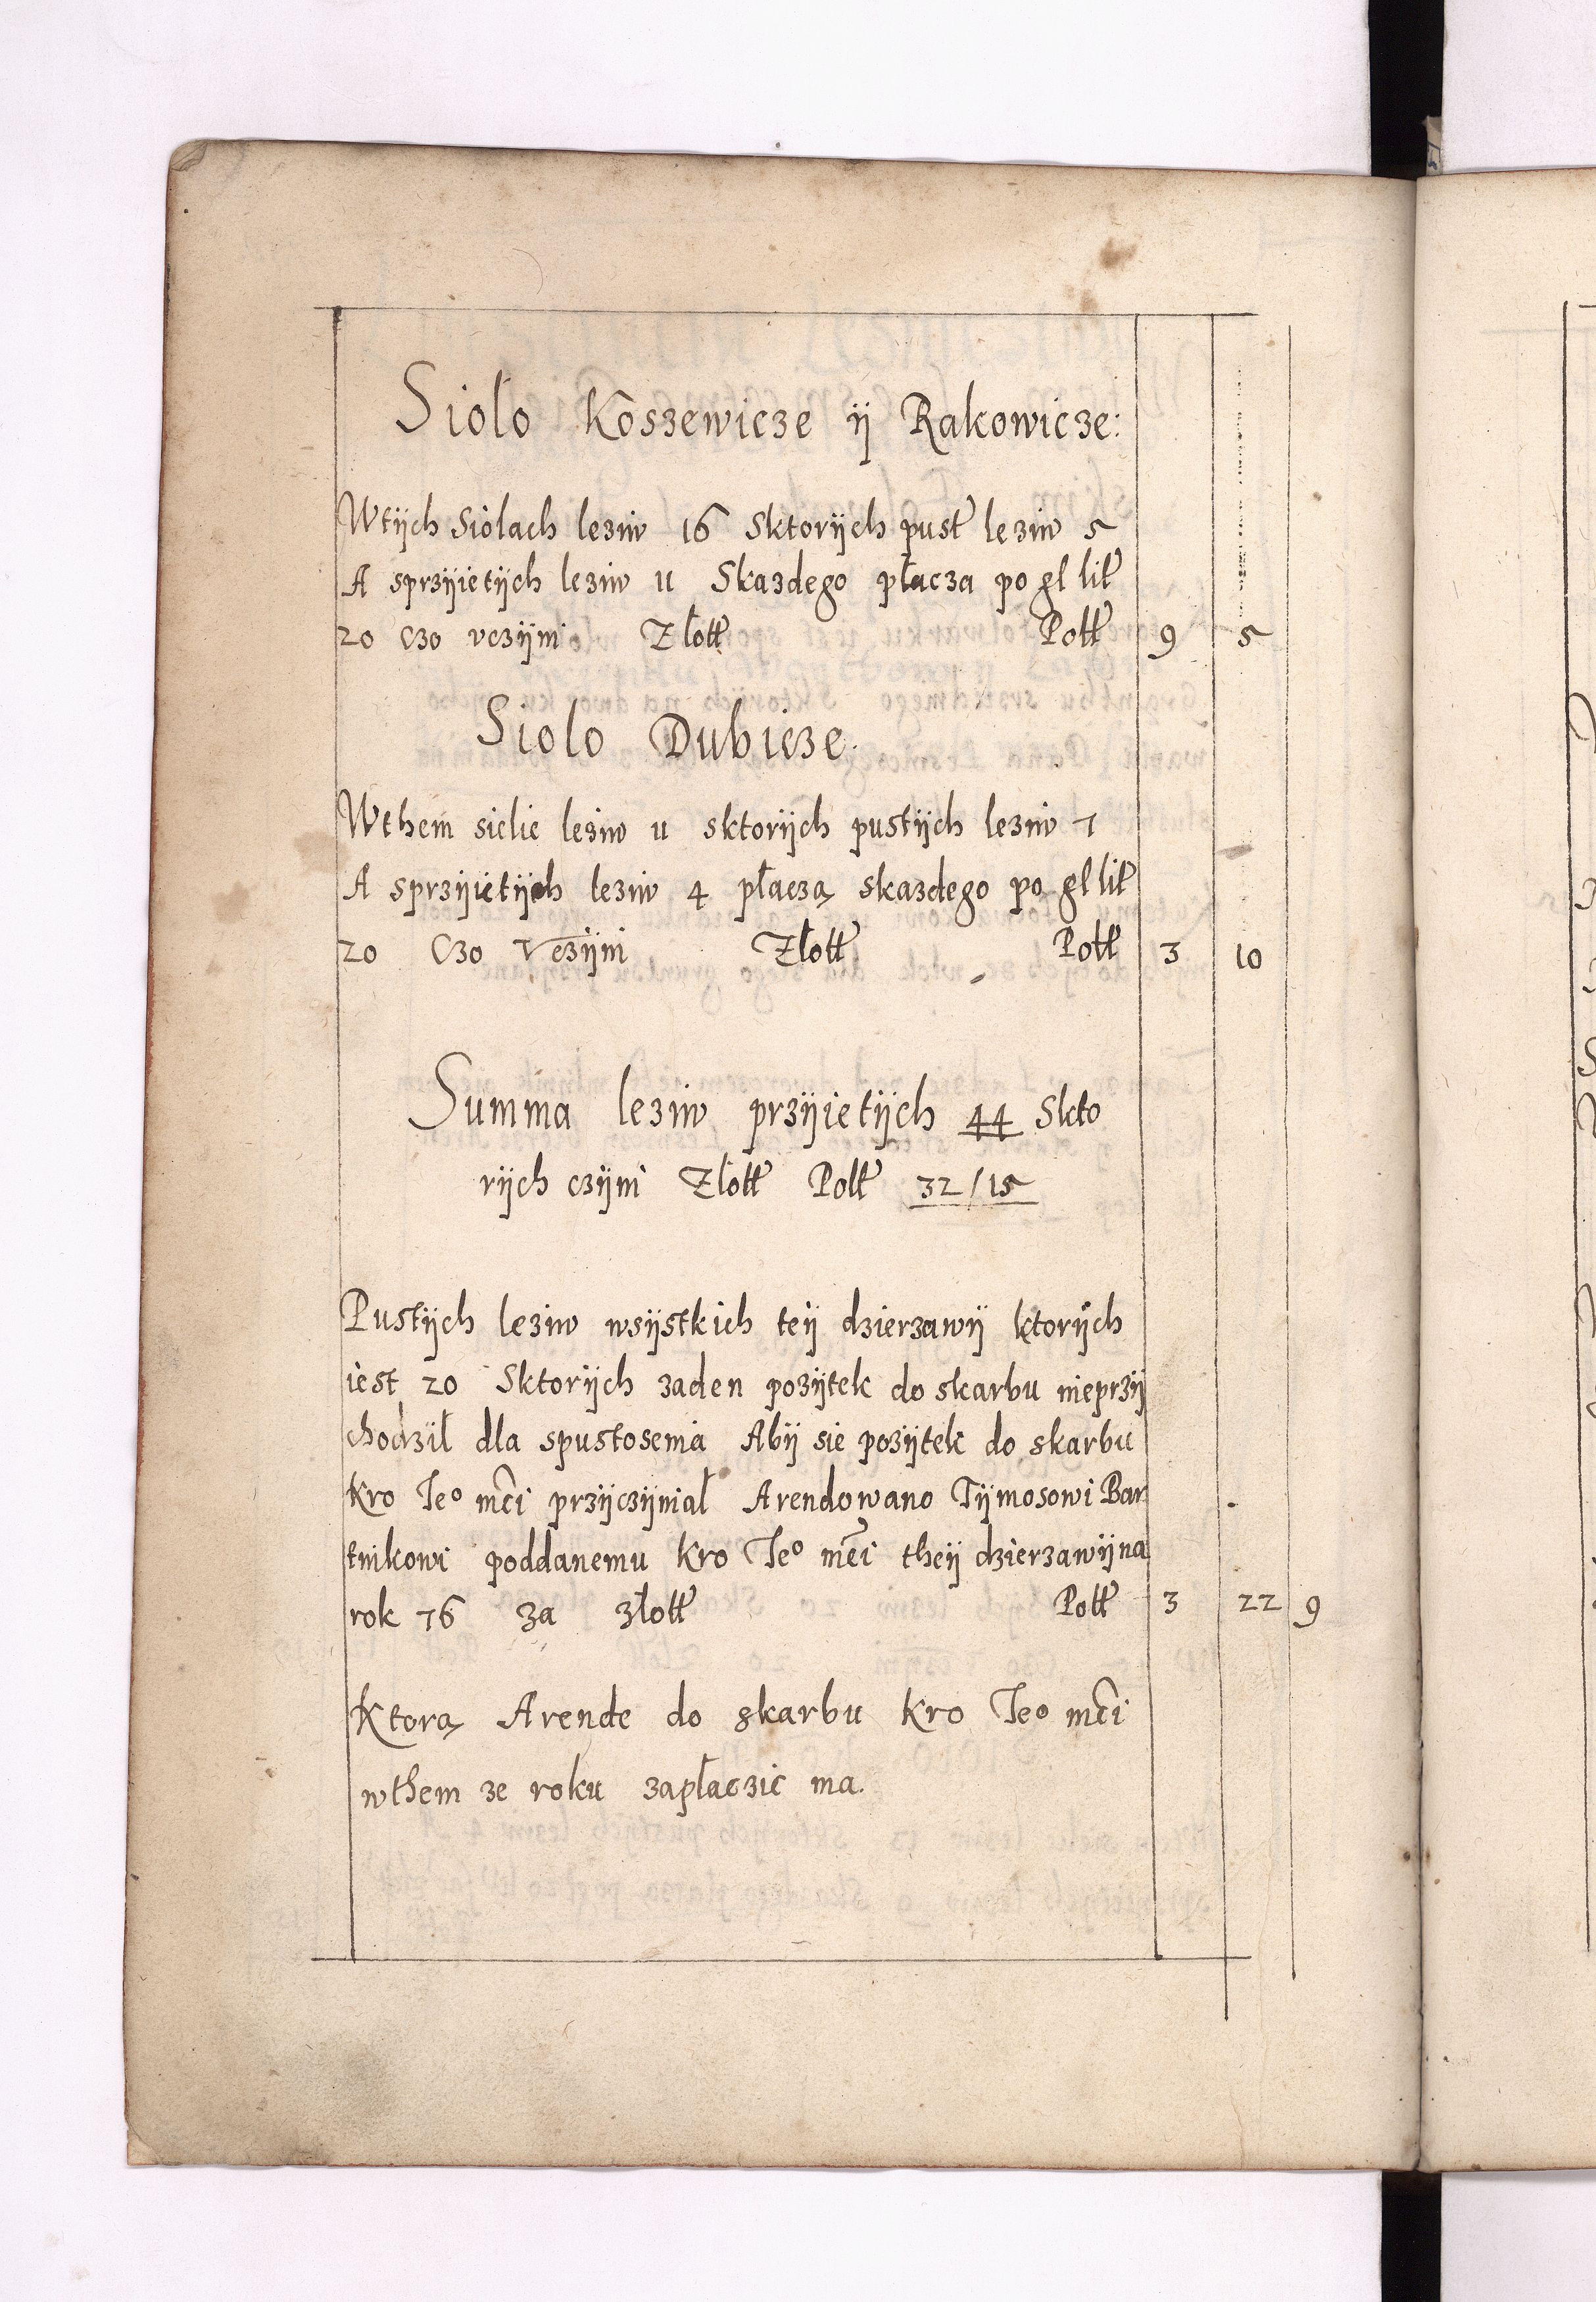 Siolo Koszewicze ÿ Rakowicze:
Wtÿch Siolach leziw 16 Sktorÿch pusł leziw 5
A sprzÿietÿch leziw 11 Skazdego płacza po gl lił
20 czo vczÿni Złotł Polł 9 5
Siolo Dubicze.
Wthem sielie leziw 11 sktorÿch pustÿch leziw 7
A sprzÿietÿch leziw 4 płaczą skazdego po gl lił
20 Czo vczÿni Złotł Polł 3 10
Summa leziw przÿietÿch 44 Skto
rÿch czÿni Złotł Polł 32/15
Pustÿch leziw wsÿstkich teÿ dzierzawÿ ktorÿch
iest 20 Sktorÿch zaden pozÿtek do skarbu nieprzÿ
chodził dla spustosenia Abÿ sie pozÿtek do skarbu
Kro Ieº mći przÿczÿniał Arendowano Tÿmosowi Bar
tnikowi poddanemu Kro Ieº mći theÿ dzierzawÿ na
rok 76 za złotł Polł 3 22 9
Ktorą Arende do skarbu Kro Ieº mći
wthem ze roku zapłaczic ma.